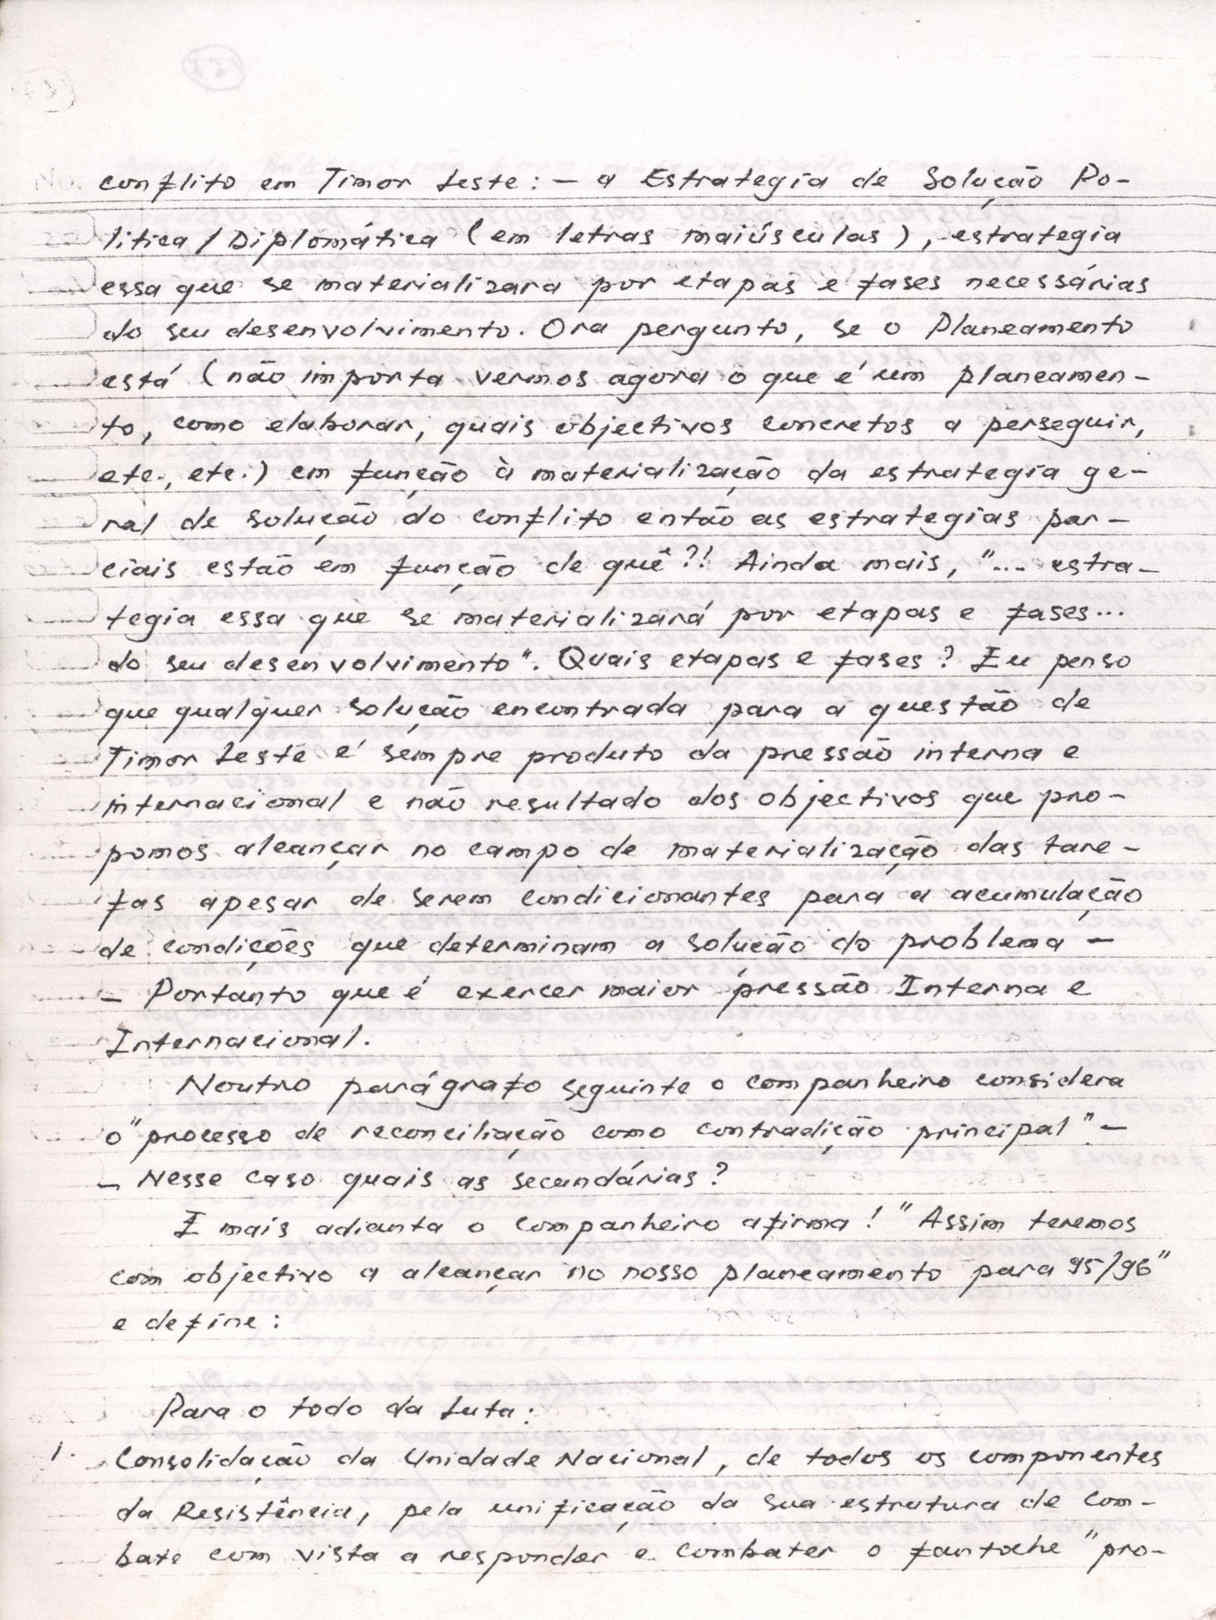 conflito em Timor Leste: - a Estrategia de Solução Po-
litica/Diplomática (em letras maiúsculas), estrategia
essa que se materializara por etapas e fases necessárias
do seu desenvolvimento. Ora pergunto, se o Planeamento
está (não importa vermos agora o que é um planeamen-
to, como elaborar, quais objectivos concretos a perseguir,
etc., etc.) em função à materialização da estrategia ge-
ral de solução do conflito então as estrategias par-
ciais estão em função de quê?! Ainda mais, "... estra-
tegia essa que se materializará por etapas e fases...
do seu desenvolvimento". Quais etapas e fases? Eu penso
que qualquer solução encontrada para a questão de
Timor Leste é sempre produto da pressão interna e
internacional e não resultado dos objectivos que pro-
pomos alcançar no campo de materialização das tare-
fas apesar de serem condicionantes para a acumulação
de condições que determinam a solução do problema -
- Portanto que é exercer maior pressão Interna e
Internacional.
Noutro parágrafo seguinte o companheiro considera
o "processo de reconciliação como contradição principal" -
- Nesse caso quais as secundárias?
E mais adianta o companheiro afirma! "Assim teremos
com objectivo a alcançar no nosso planeamento para 95/96"
e define:
Para o todo da Luta:
1. Consolidação da Unidade Nacional, de todos os componentes
da Resistência, pela unificação da sua estrutura de com-
bate com vista a responder e combater o fantoche "pro-